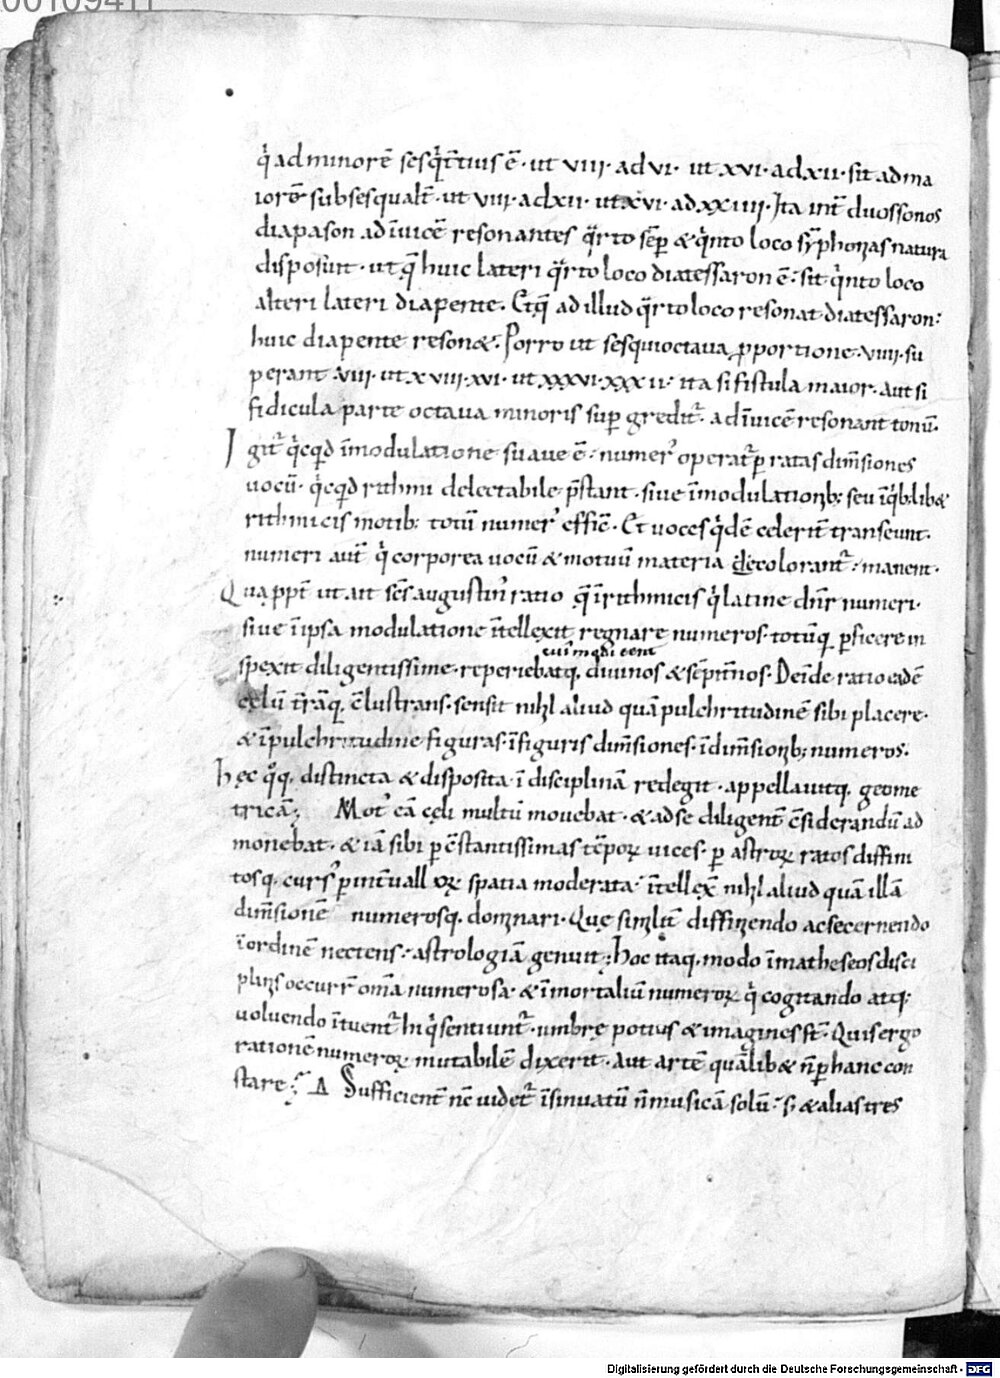 00109411
q̇ ad minorē sesq̇t̄tius ē · ut VIII · ad VI · ut XVI · ad XII · sit ad ma
iorē subsesqualt̄ · ut VIII · ad XII · ut XVI · ad XXIIII · Ita int̄ duos sonos
diapason ad īuicē resonantes q̄rto sēp & q̇nto loco sȳphonias natura
disposuit · ut q̄ huic lateri q̄rto loco diatessaron ē · sit q̇nto loco
alteri lateri diapente. Et q̄ ad illud q̄rto loco resonat diatessaron:
huic diapente reson&. Porro ut sesquioctaua ꝓportione · VIIII · su
perant VIII · ut XVIII · XVI · ut XXXVI · XXXII: ita si fistula maior · aut si
fidicula parte octaua minoris sup greditr̄ · ad īuicē resonant tonū.
Igitr̄ q̇cq̇d ī modulatione suaue ē: numer' operatr̄ p ratas dim̄siones
uocū · q̇cq̇d rithmi delectabile p̄stant · siue ī modulationib; seu ī q̇b;lib&
rithmicis motib; totū numer' effic̄ · Et uoces q̇dē celerit̄ transeunt.
numeri aut̄ q̇ corporea uocū & motuū materia decolorantr̄: manent.
Quaꝓpt̄ ut ait sc̄s augustin' ratio q̄ ī rithmicis q̇ latine dn̄r numeri.
siue ī ipsa modulatione ītellexit regnare numeros · totūq. ꝑficere in
spexit diligentissime · reperiebatq. diuinos & sēpit̄nos. Deīde ratio eadē
cęlū t̄rāq. c̄lustrans · sensit nihl aliud quā pulchritudinē sibi placere.
& ī pulchritudine figuras · ī figuris dim̄siones · ī dim̄sionib; numeros.
Hęc q̊q. distincta & disposita ī disciplinā redegit · appellauitq. geome
tricā; Mot' eā cęli multū mouebat · & ad se diligent̄ c̄siderandū ad
monebat · & iā sibi p c̄stantissimas tēporꝝ uices · p astrorꝝ ratos diffini
tosq. curs' p interuallorꝝ spatia moderata: ītellex̄ nihl aliud quā illā
dim̄sionē numerosq. dominari · Quę similit̄ diffiniendo ac secernendo
ī ordinē nectens: astrologiā genuit; Hoc itaq. modo ī matheseos disci
plinis occurr̄ om̄a numerosa · & īmortaliū numerorꝝ q̇ cogitando atq;
uoluendo īueniuntr̄ hi q̇ sentiuntr̄ · umbrę potius & imagines st̄ · Quis ergo
rationē numerorꝝ mutabilē dixerit · Aut artē quālib& n̄ p hanc con
stare; Δ Sufficient̄ nē uidetr̄ īsinuatū n̄ musicā solū: s; & alias tres
Digitalisierung gefördert durch die Deutsche Forschungsgemeinschaft - DFG